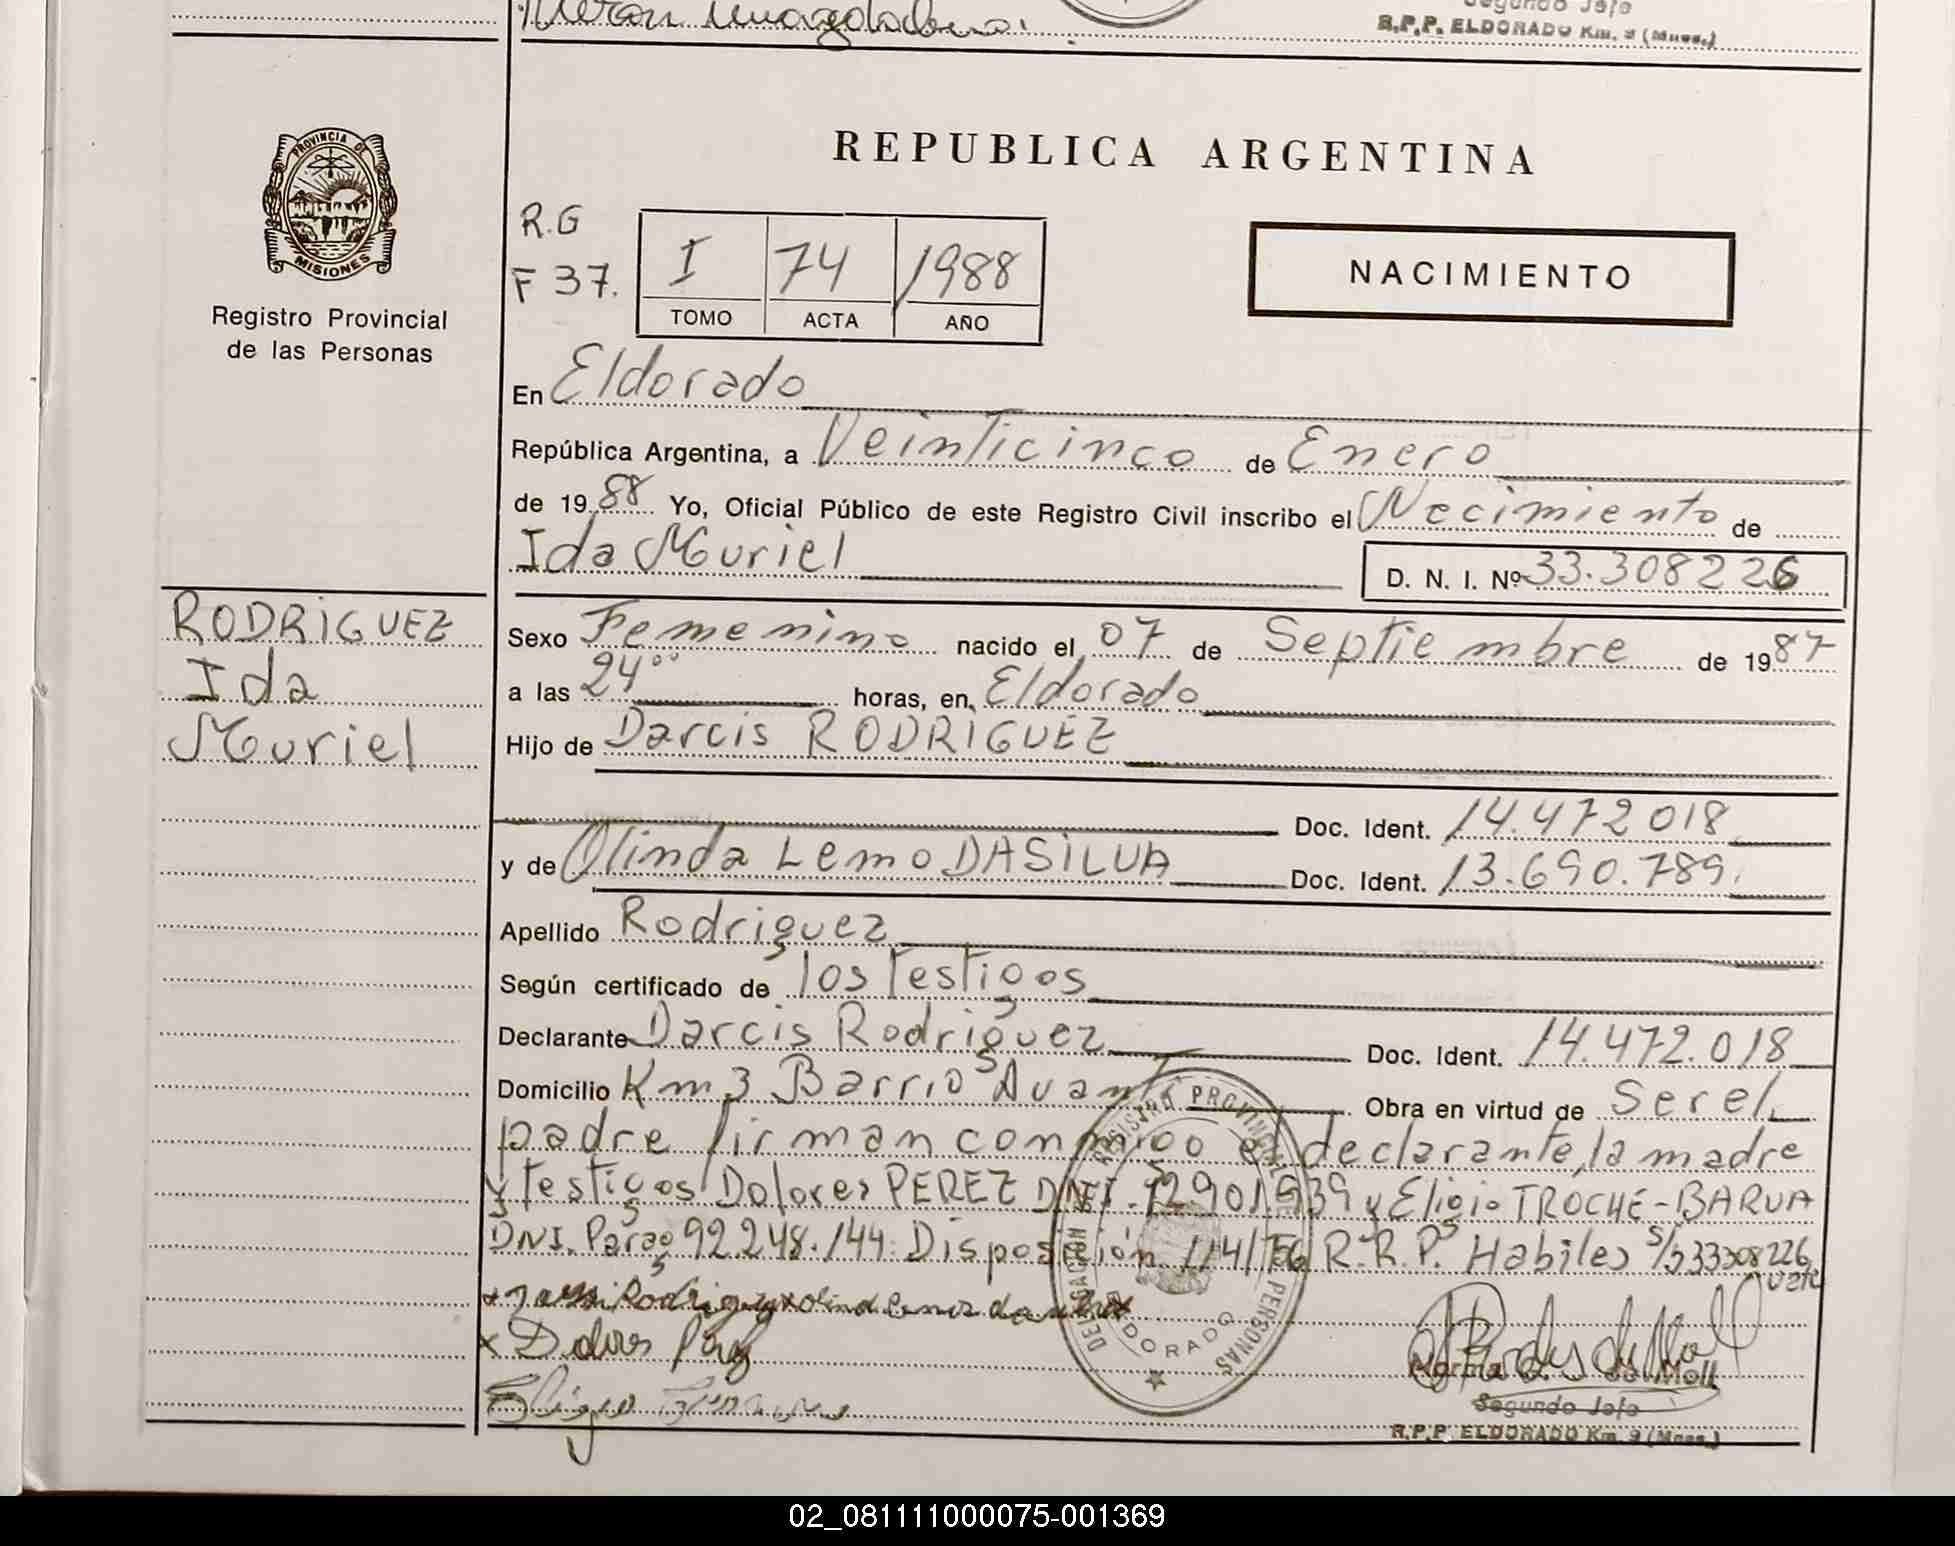 Segundo Jefe
R.P.P. ELDORADO Km. 9 (Mnes.)
PROVINCIA DE
MISIONES
Registro Provincial
de las Personas
REPUBLICA ARGENTINA
R.G
F 37.
I 74 1988
TOMO ACTA AÑO
NACIMIENTO
En Eldorado
República Argentina, a Veinticinco de Enero
de 1988 Yo, Oficial Público de este Registro Civil inscribo el Nacimiento de
Ida Muriel D. N. I. Nº 33.308226
RODRIGUEZ
Ida
Muriel
Sexo Femenino nacido el 07 de Septiembre de 1987
a las 24⁰⁰ horas, en Eldorado
Hijo de Darcis RODRIGUEZ
Doc. Ident. 14.472018
y de Olinda Lemo DASILVA Doc. Ident. 13.690.789.
Apellido Rodriguez
Según certificado de los testigos
Declarante Darcis Rodriguez Doc. Ident. 14.472.018
Domicilio Km 3 Barrio Avant Obra en virtud de Ser el
padre firman conmigo el declarante, la madre
y testigos Dolores PEREZ DNI. 12.901.939 y Eligio TROCHE-BARUA
DNI. Parag 92.248.144. Disposición 114/756 R.R.P. Habiles S/33308226
vale
x Rodriguez x olinda lemos da
x Dolores Perez
Eligio
REGISTRO PROVINCIAL DE LAS PERSONAS
DELEGACION
ELDORADO
Norma de Moll
Segundo Jefe
R.P.P. ELDORADO Km. 9 (Mnes.)
02_081111000075-001369